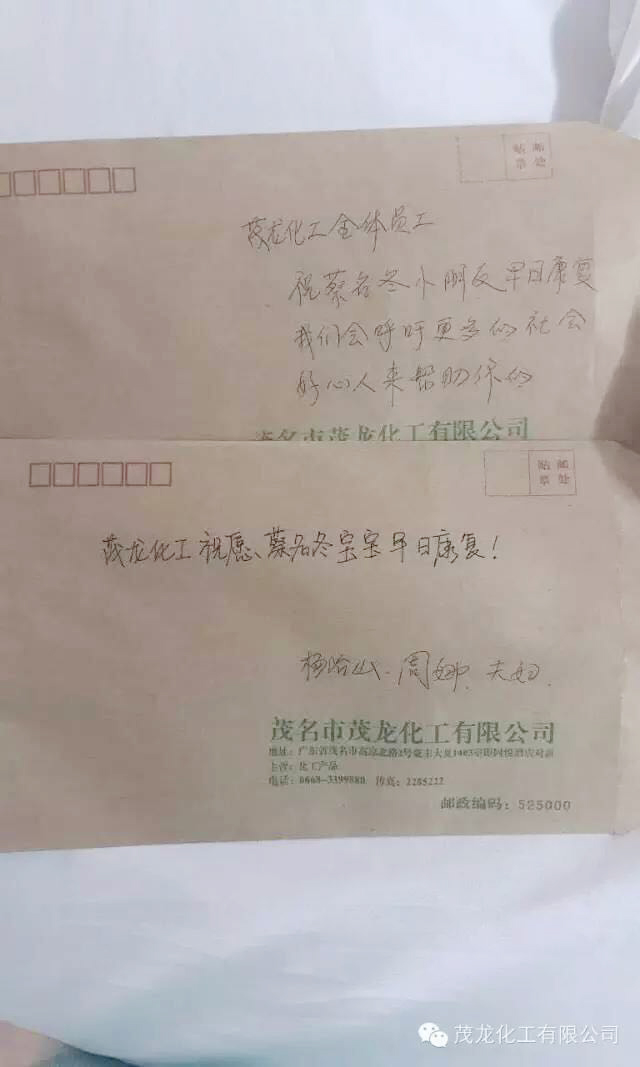 贴邮
票处
茂龙化工全体员工
祝蔡名冬小朋友早日康复
我们会呼吁更多的社会
好心人来帮助你的
茂名市茂龙化工有限公司
贴邮
票处
茂龙化工祝愿、蔡名冬宝宝早日康复!
周娜、夫妇
茂名市茂龙化工有限公司
地址:广东省茂名市高凉北路2号豪丰大厦1403室
主营:化工产品
电话:0668-3399880 传真:2285222
邮政编码:525000
茂龙化工有限公司